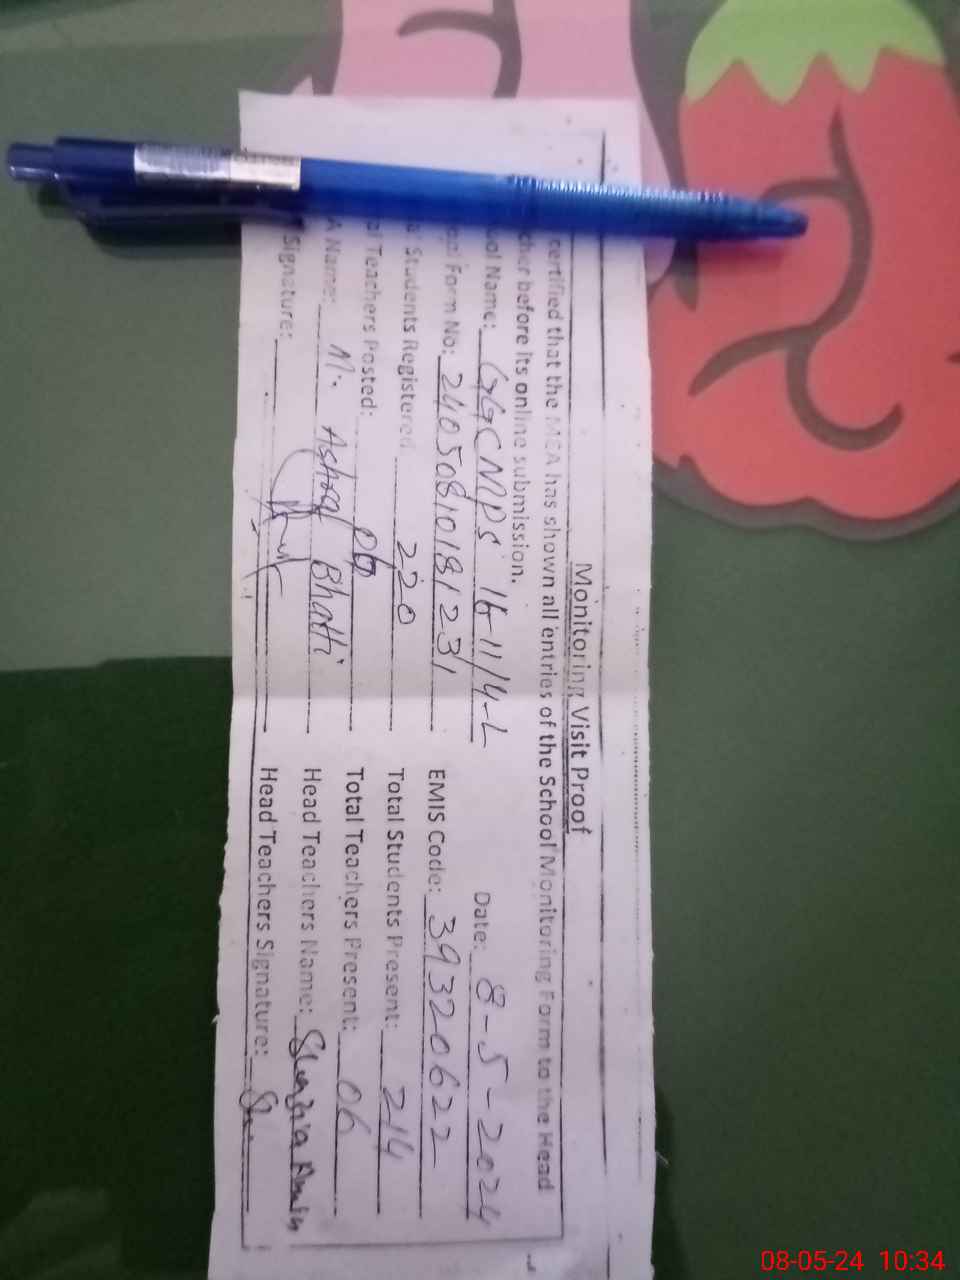 Monitoring Visit Proof
certified that the MEA has shown all entries of the School Monitoring Form to the Head
cher before its online submission.
ool Name: GGCMPS 16-11/14-L Date: 8-5-2024
Form No: 24050810181231 EMIS Code: 39320622
Students Registered 220 Total Students Present: 214
al Teachers Posted: 06 Total Teachers Present: 06
A Name: M. Ashraf Bhatti Head Teachers Name: Amin
Signature: Head Teachers Signature:
08-05-24 10:34